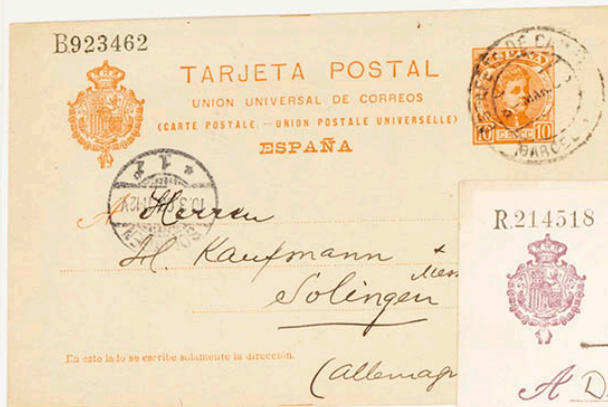 B923462
TARJETA POSTAL
UNION UNIVERSAL DE CORREOS
(CARTE POSTALE. — UNION POSTALE UNIVERSELLE)
ESPAÑA
10 10
A Herren
H. Kaufmann +
Solingen
(Allemagn
En este lado se escribe solamente la dirección.
R.214518
A D